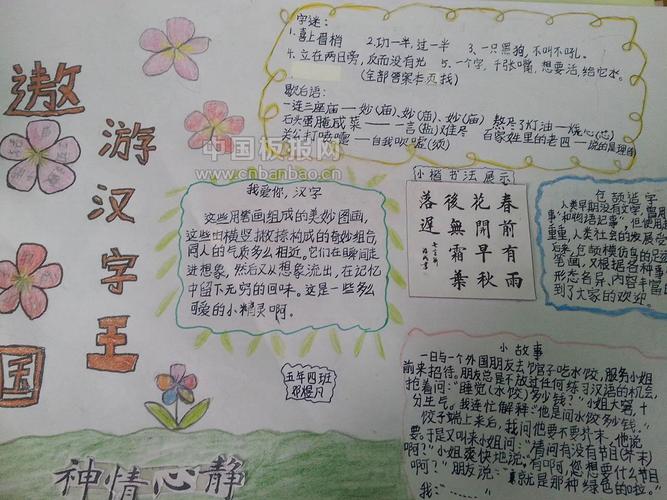 遨
游
汉
字
王
国
字迷：
1.喜上眉梢 2.功一半,过一半 3、一只黑狗，不叫不吼。
4.立在两日旁，反而没有光 5.一个字，千张嘴，想要活，给它水。
(全部答案本页找)
歇后语：
一连三座庙——妙(庙)、妙(庙)、妙(庙) 熬尽了灯油——烧心(芯)
石头蛋腌咸菜——一言(盐)难尽 百家姓里的老四——说的是理由
关公打喷嚏——自我吹嘘(须)
中国板报网
www.cnbanbao.cn
我爱你，汉字
这些用笔画组成的美妙图画，
这些由横竖撇捺构成的奇妙组合，
同人的气质多么相近。它们在瞬间走
进想象，然后又从想象流出，在记忆
中留下无穷的回味。这是一些多么
可爱的小精灵啊。
小楷书法展示
春前有雨
花開早秋
後無霜葉
落遲
仓颉造字
人类早期没有文字，曾用
事"和"物语记事"，但使用
重重，人类社会的发展
后来，仓颉模仿鸟的足迹
笔画，又根据各种事
形态各异、内容丰富的
到了大家的欢迎
五年四班
小故事
一日与一个外国朋友去饺子馆吃水饺，服务小姐
前来招待。朋友总是不放过任何练习汉语的机会，
抢着问："睡觉(水饺)多少钱？"小姐大窘，十
分生气。我连忙解释："他是问水饺多少钱。"
饺子端上来后，我问他要不要芥末，他说
要。于是又叫来小姐问："请问有没有节目(芥末)
啊？"小姐爽快地说："有啊，您想要什么节目
啊？"朋友说："就是那种绿色的啦。"
我：……
神情心静